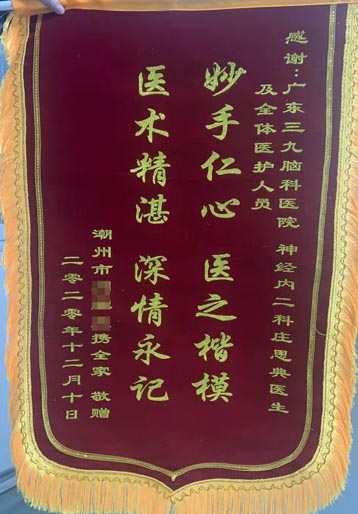 感谢：广东三九脑科医院 神经内二科庄恩典医生
及全体医护人员
妙手仁心 医之楷模
医术精湛 深情永记
潮州市 携全家 敬赠
二零二零年十二月十日